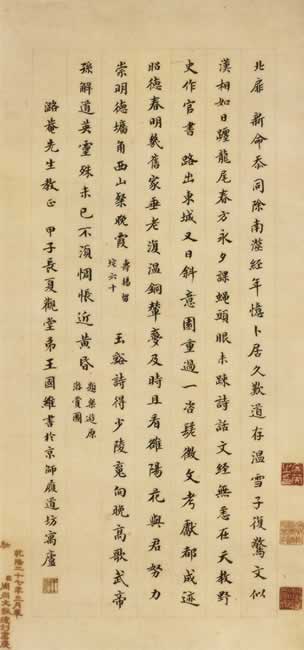 北扉新命忝同除南澨經年憶卜居久歎道存溫雪子復驚文似
漢相如日躔龍尾春方永夕課蠅頭眼未疎詩話文經無恙在天教野
史作官書 路出東城又日斜意園重過一咨嗟徵文考獻都成迹
昭德春明幾舊家垂老復溫銅輦夢及時且看雒陽花與君努力
崇明德墉角西山粲晚霞 壽楊留
垞六十 玉谿詩得少陵䰟向晚高歌武帝
孫解道英靈殊未已不須惆悵近黃昏 題樂遊原
游賞圖
潞菴先生教正 甲子長夏觀堂弟王國維書於京師履道坊寓廬
乾隆二十七年三月